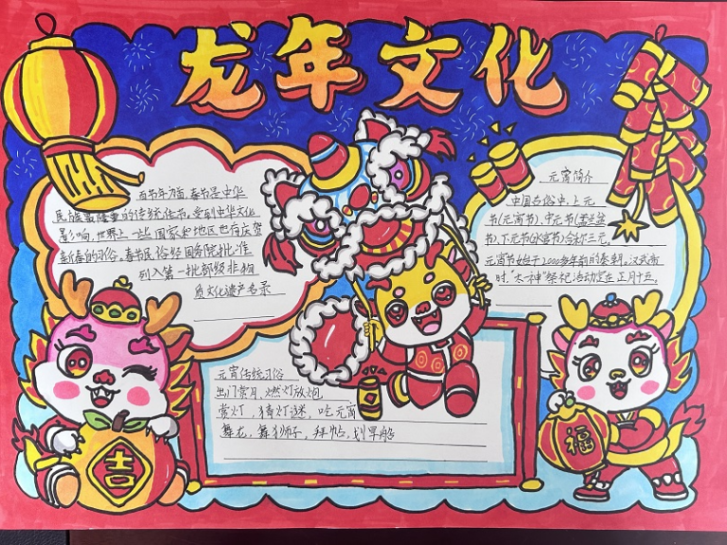 龙年文化
百节年为首,春节是中华
民族最隆重的传统佳节。受到中华文化
影响,世界上一些国家和地区也有庆贺
新春的习俗。春节民俗经国务院批准
列入第一批国家级非物
质文化遗产名录
元宵简介
中国古俗中,上元
节(元宵节)、中元节(盂兰盆
节)、下元节(水官节)合称三元。
元宵节始于2000多年前的秦朝。汉武帝
时,"太一神"祭祀活动定在正月十五。
元宵传统习俗
出门赏月、燃灯放焰、
赏灯、猜灯谜、吃元宵
舞龙、舞狮子、拜帖、划旱船
吉
福